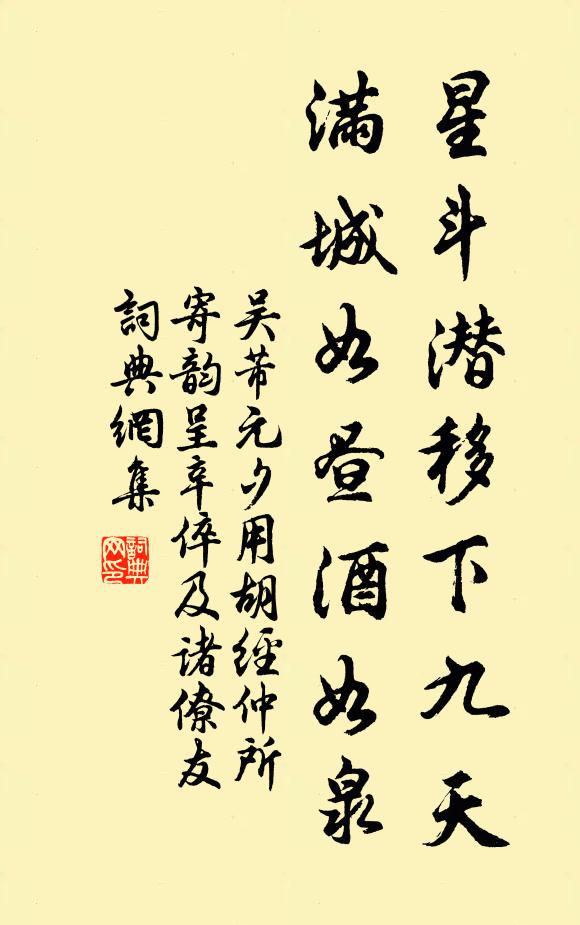 星斗潜移下九天
满城如昼酒如泉
吴芾元夕用胡經仲所
寄韵呈卒倅及诸僚友
詞典網集
詞典
网印